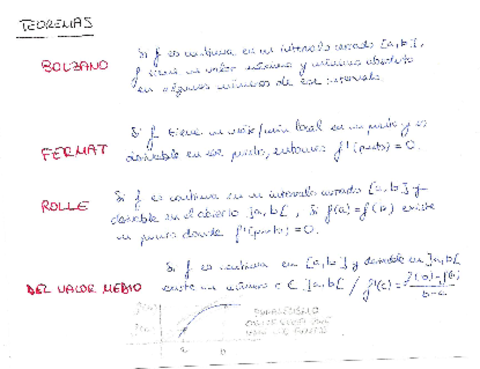 TEOREMAS
BOLZANO
Si f es continua en un intervalo cerrado [a,b],
f tiene un valor máximo y mínimo absoluto
en algunos números de ese intervalo.
FERMAT
Si f tiene un máx/mín local en un punto y es
derivable en ese punto, entonces f'(punto) = 0.
ROLLE
Si f es continua en un intervalo cerrado [a,b] y
derivable en el abierto ]a,b[, Si f(a)=f(b) existe
un punto donde f'(punto) = 0.
DEL VALOR MEDIO
Si f es continua en [a,b] y derivable en ]a,b[
existe un número c ∈ ]a,b[ / f'(c) = f(b)-f(a)
b-a
PARALELISMO